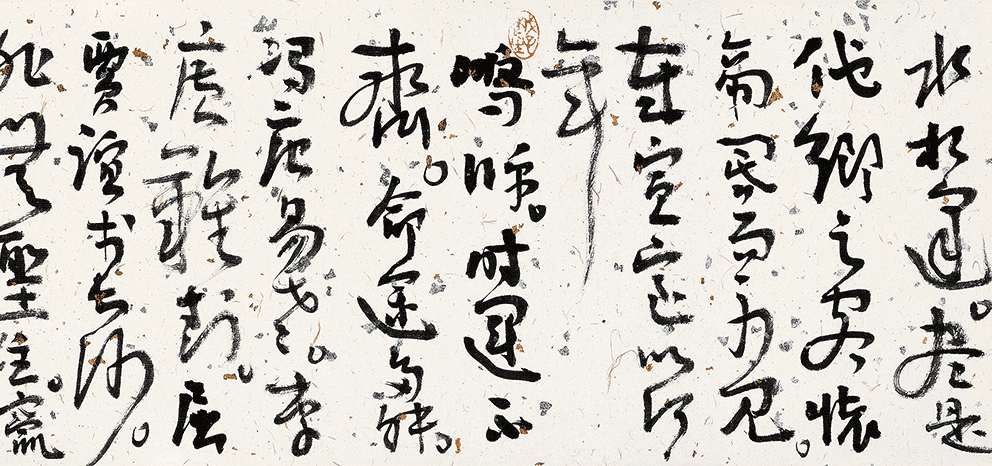 水相逢。盡是
他鄉之客懷
帝阍而不見。
奉宣室以何
年
嗚呼。时運不
齊。命途多舛。
馮唐易老。李
廣難封。屈
賈誼於长沙。
非無聖主。竄